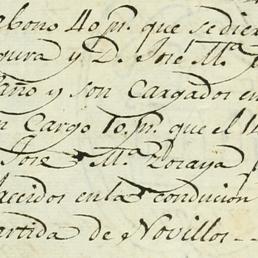 abono 40 p.s que se dier
gura y D.n José M.a
año y son Cargados en
n Cargo 10 p.s que el
José M.a Loraya
hacidos en la condución
artida de Novillos